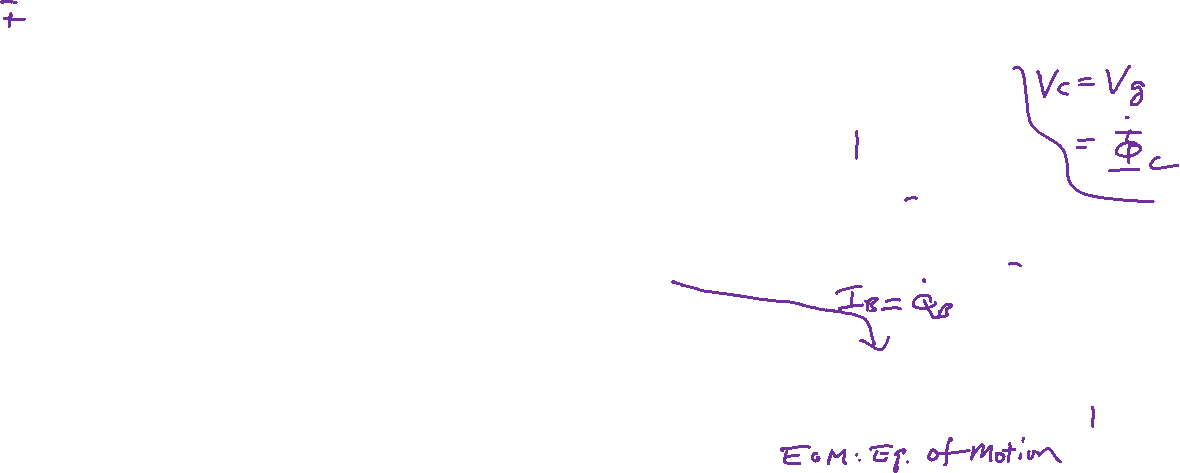 V_C = V_g
= Φ̇_C
I_B = Q̇_B
EoM: Eq. of Motion